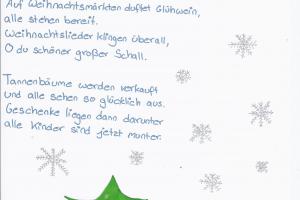 Auf Weihnachtsmärkten duftet Glühwein,
alle stehen bereit.
Weihnachtslieder klingen überall,
O du schöner großer Schall.
Tannenbäume werden verkauft
und alle sehen so glücklich aus.
Geschenke liegen dann darunter
alle Kinder sind jetzt munter.